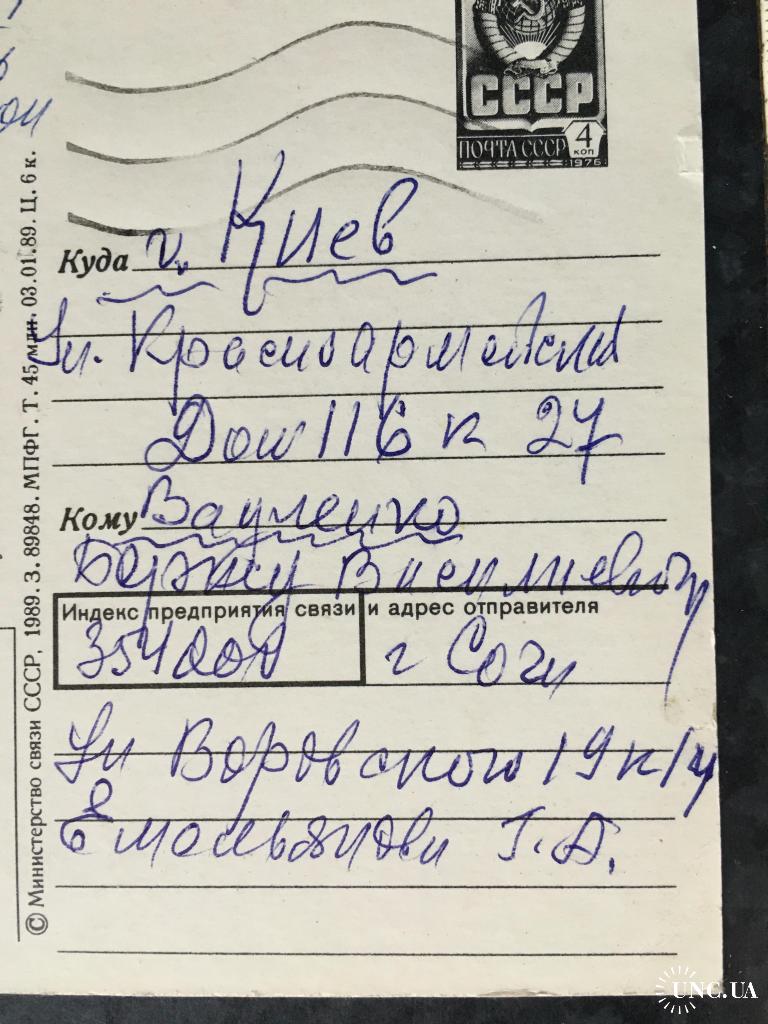 СССР
ПОЧТА СССР 4 КОП 1976
Куда г. Киев
Ул. Красноармейская
Дом 116 к 27
Кому
Василиевичу
Индекс предприятия связи и адрес отправителя
354000 г Сочи
Ул Воровского 19 к 14
Г. А.
© Министерство связи СССР, 1989. З. 89848. МПФГ. Т. 45 млн. 03.01.89. Ц. 6 к.
UNC.UA